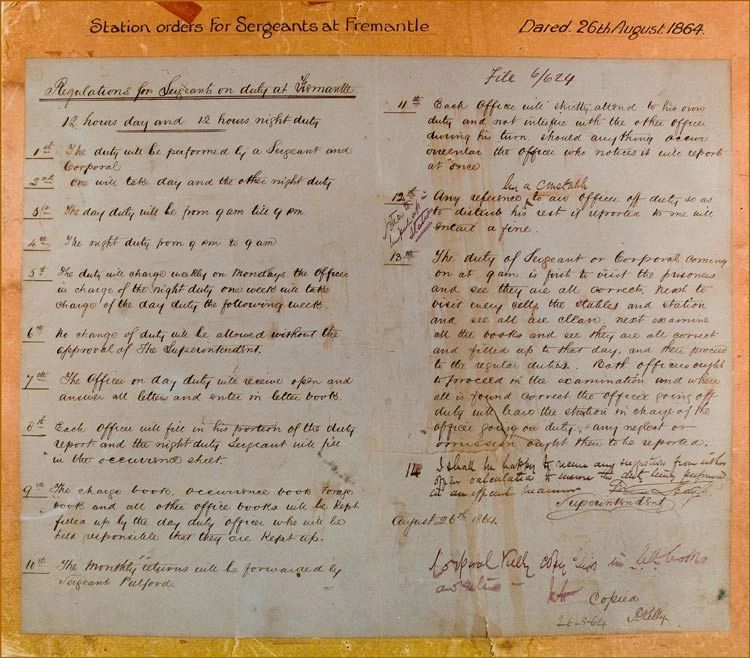 Station orders for Sergeants at Fremantle
Dared. 26th August 1864.
Regulations for Sergeant on duty at Fremantle
12 hours day and 12 hours night duty
1st The duty will be performed by a Sergeant and
Corporal
2nd One will take day and the other night duty
3rd The day duty will be from 9 am till 9 pm
4th The night duty from 9 pm to 9 am
5th The duty will change weekly on Mondays the Officer
in charge of the night duty one week will take
charge of the day duty the following week
6th No change of duty will be allowed without the
approval of The Superintendent.
7th The Officer on day duty will receive open and
answer all letters and enter in letter book.
8th Each Officer will fill in his portion of the duty
report and the night duty Sergeant will fill
in the occurrence sheet.
9th The charge book, occurrence book forage
book and all other office books will be kept
filled up by the day duty officer who will be
held responsible that they are kept up.
10th The Monthly returns will be forwarded by
Sergeant Pulford.
File 6/624
11th Each Officer will strictly attend to his own
duty and not interfere with the other officer
during his turn. should anything occur
the Officer who notices it will report
at once
by a Constable
12th Any reference to an Officer off duty so as
to disturb his rest if reported to me will
entail a fine.
station
13th The duty of Sergeant or Corporal coming
on at 9 am is first to visit the prisoners
and see they are all correct. next to
visit every cell, the stables and station
and see all are clean. next examine
all the books and see they are all correct
and filled up to that day, and then proceed
to the regular duties. Both officers ought
to proceed in the examination and where
all is found correct the officer going off
duty will leave the station in charge of the
officer going on duty, any neglect or
omission ought then to be reported.
14 I shall be happy to receive any suggestion from either
officer calculated to insure the duty being performed
in an efficient manner
Superintendent
August 26th 1864.
Corporal Kelly copy this in
Copied
26-8-64 Kelly